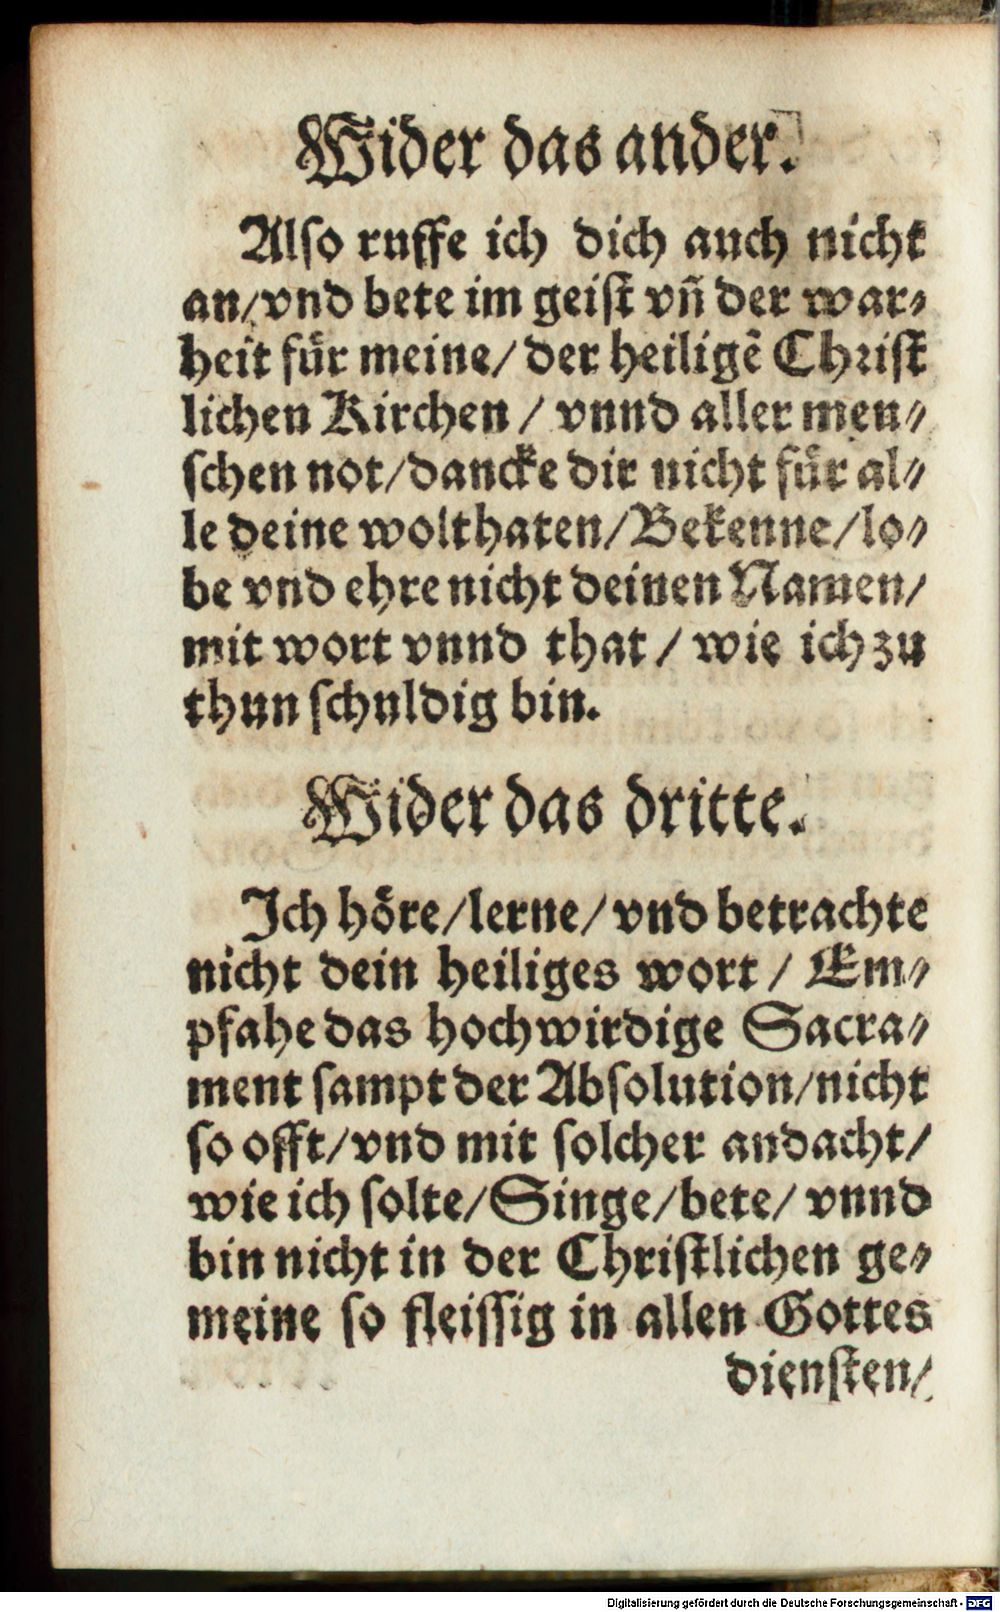 Wider das ander.
Also ruffe ich dich auch nicht
an/vnd bete im geist vñ der war⸗
heit fuͤr meine/ der heiligẽ Christ
lichen Kirchen / vnnd aller men⸗
schen not/dancke dir nicht fuͤr al⸗
le deine wolthaten/Bekenne/lo⸗
be vnd ehre nicht deinen Namen/
mit wort vnnd that / wie ich zu
thun schuldig bin.
Wider das dritte.
Ich hoͤre/lerne/vnd betrachte
nicht dein heiliges wort / Em⸗
pfahe das hochwirdige Sacra⸗
ment sampt der Absolution/nicht
so offt/vnd mit solcher andacht/
wie ich solte/Singe/bete/ vnnd
bin nicht in der Christlichen ge⸗
meine so fleissig in allen Gottes
diensten/
Digitalisierung gefördert durch die Deutsche Forschungsgemeinschaft - DFG